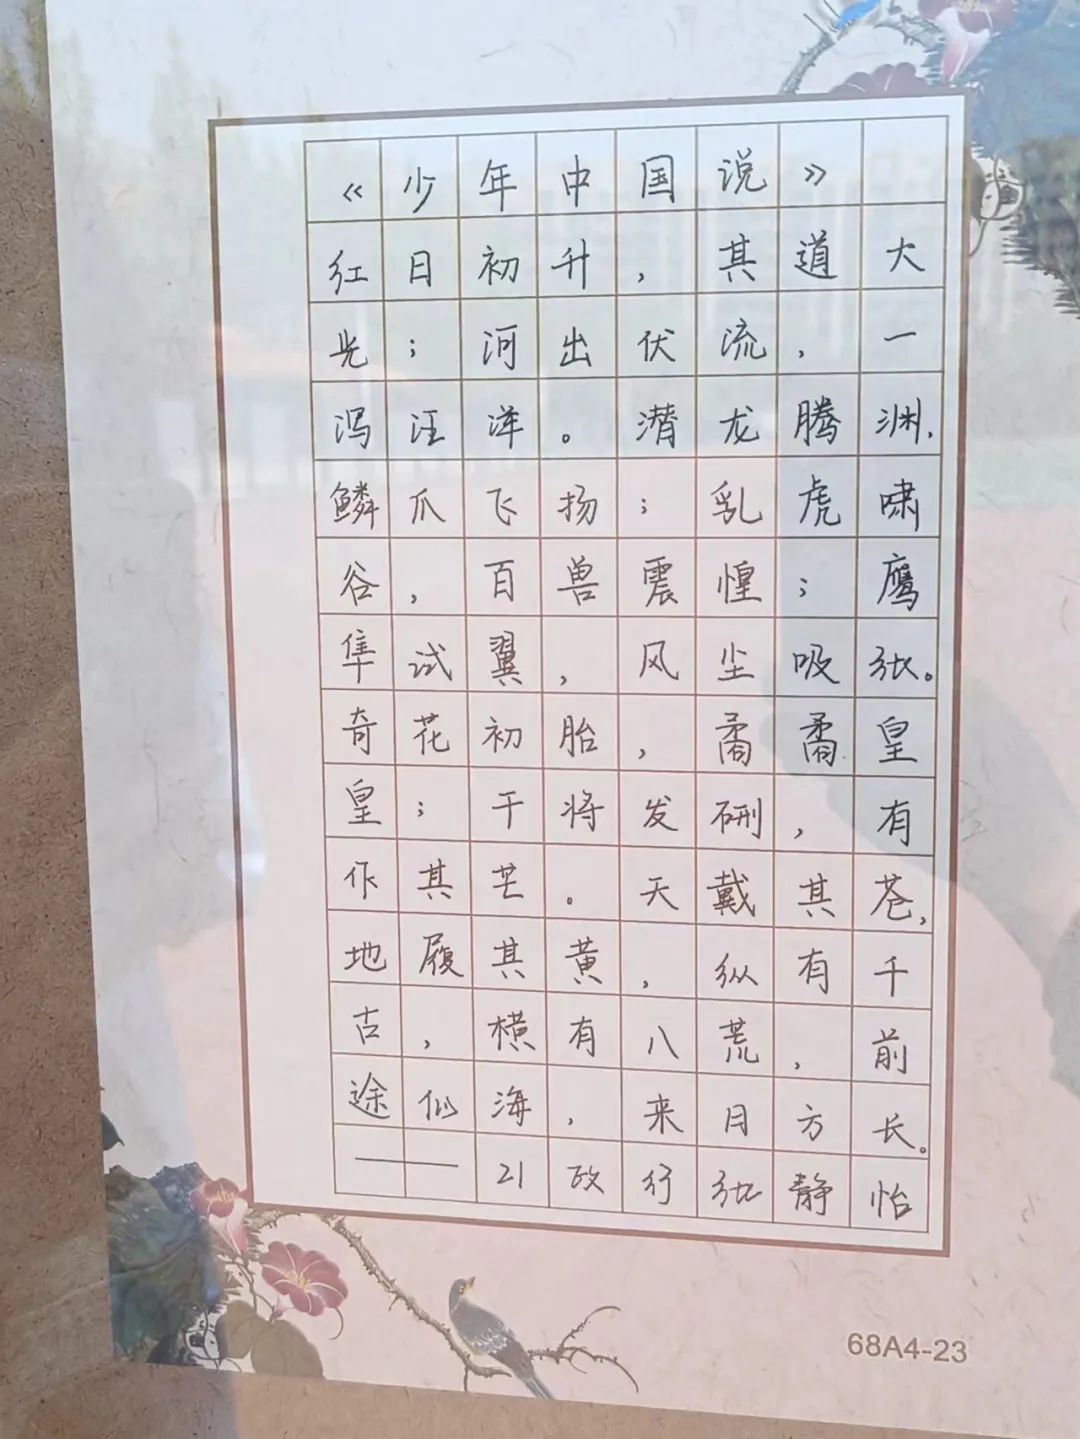 《少年中国说》
红日初升，其道大
光；河出伏流，一
泻汪洋。潜龙腾渊，
鳞爪飞扬；乳虎啸
谷，百兽震惶；鹰
隼试翼，风尘吸张。
奇花初胎，矞矞皇
皇；干将发硎，有
作其芒。天戴其苍，
地履其黄，纵有千
古，横有八荒，前
途似海，来日方长。
——21政行张静怡
68A4-23